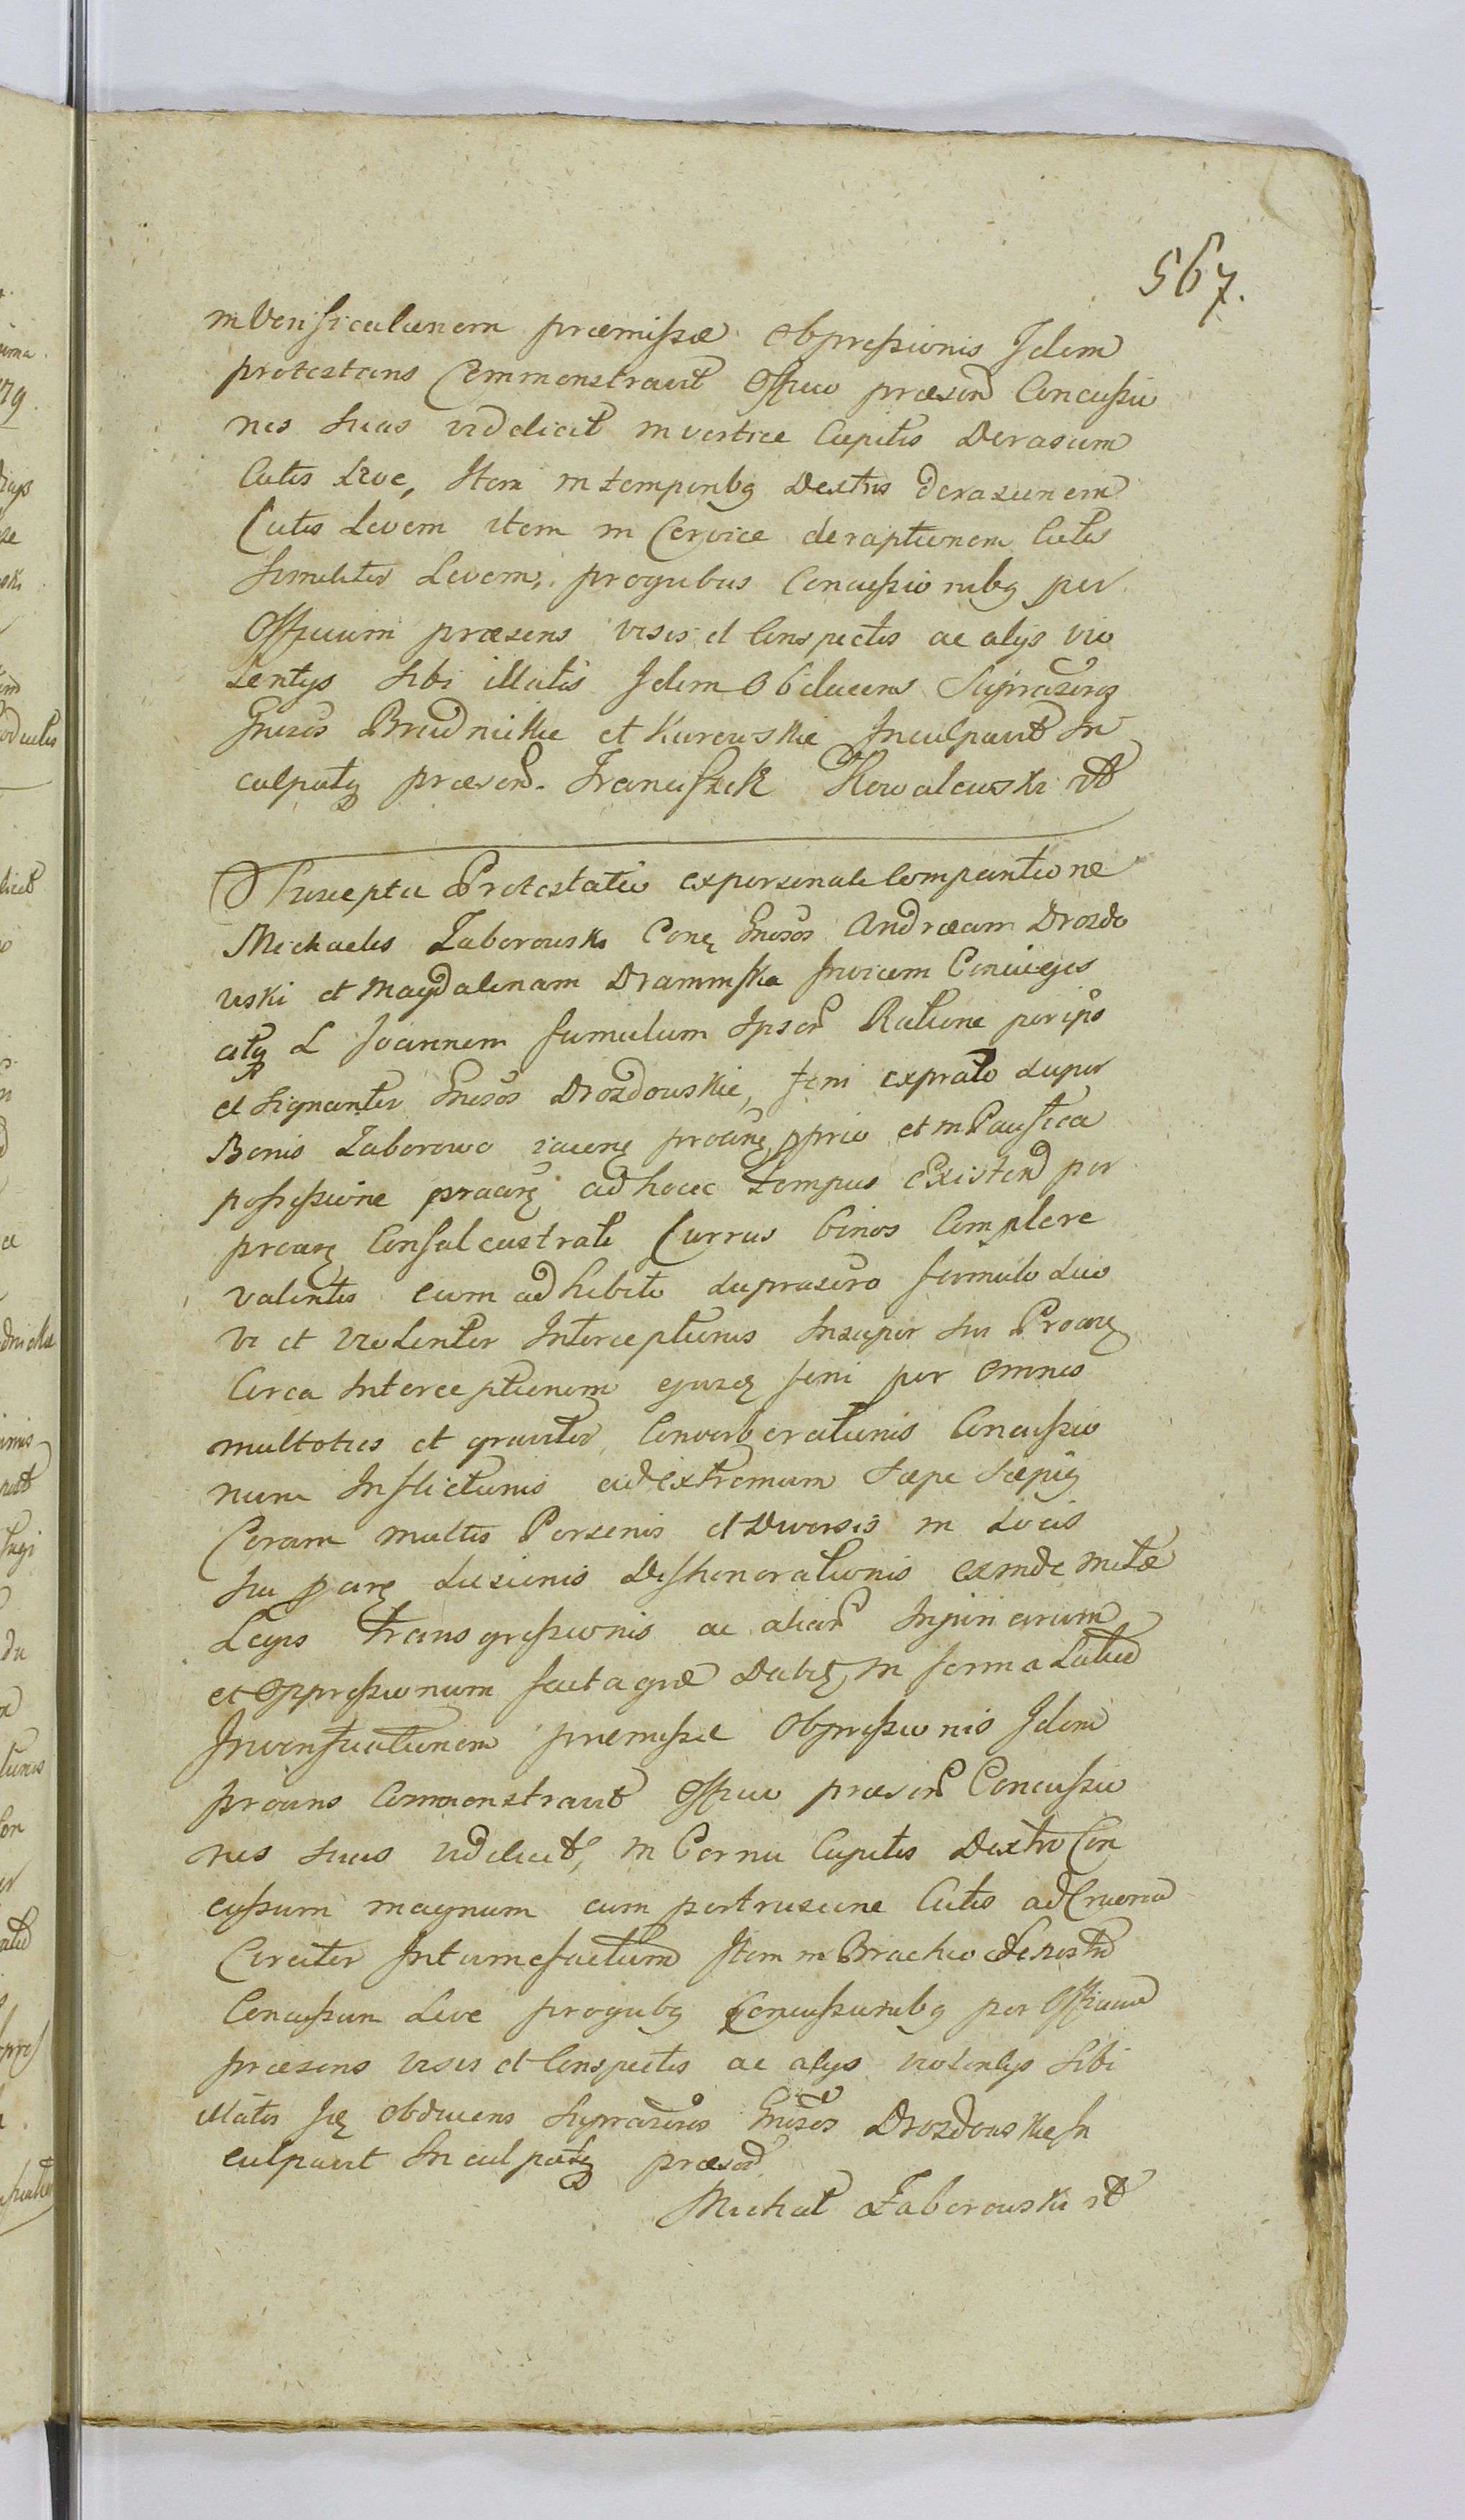 567.
in Verificationem præmissæ obpressionis Idem
protestans Commonstravit Offici præsen Concussio
nes suas videlicet in vertice Capitis Derasum
Cutis Leve, Item in temporibq Dextris derasionem
Cutis Levem item in Cervice deraptionem Cutis
similiter Levem, proquibus Concussionibq per
Officium præsens visis et Conspectis ac alijs vio
lentijs sibi illatis Idem Obducens Suprascros
Gnrsos Brudnickie et Kurowskie Inculpavit In
culpatq præsen. Franciszek Kowalewski
Suscepta Protestatio ex personali Comparitione
Michaelis Zaborowski Conq Gnrsos Andreaam Drozdo
wski et Magdalenam Dramińska Invicem Coniuges
atq L Joannem famulum Ipsor Ratione per ipsos
et signanter Gnrsos Drozdowskie, feni ex prato super
Bonis Zaborowo iacenq protunq pprio et in Pacifica
possessione proarq ad hocce tempus existend per
proarq Consalcastrati Currus binos Complere
valentis cum adhibito suprascro famulo suo
vi et violenter Interceptionis Insuper sui Proarq
Circa Interceptionem ejusdq feni per omnes
multoties et graviter Converberationis Concussio
num Inflictionis ad extremum sæpe sæpiq
Coram multis Personis et Diversis in Locis
sui parq Lesionis Deshonorationis exinde metæ
Legis transgressionis ac aliar Injuriarum
et oppressionum facta quæ Dabit, in forma Latiori
In verificationem præmissæ Obpressionis Idem
proans Commonstravit Offici præsen Concussio
nes suas videlicet, in Cornu Capitis Dextro Con
cussum magnum cum pertrusione Cutis ad Cruorem
Circiter Intumefactum Item in Brachio Sinistro
Concussum Leve proquibq Concussionibq per Officium
præsens visis et Conspectis ac alijs violentijs sibi
illatis Idq obducens Suprascros Gnrsos Drozdowskie In
culpavit Inculpatq præsen
Michał Zaborowski